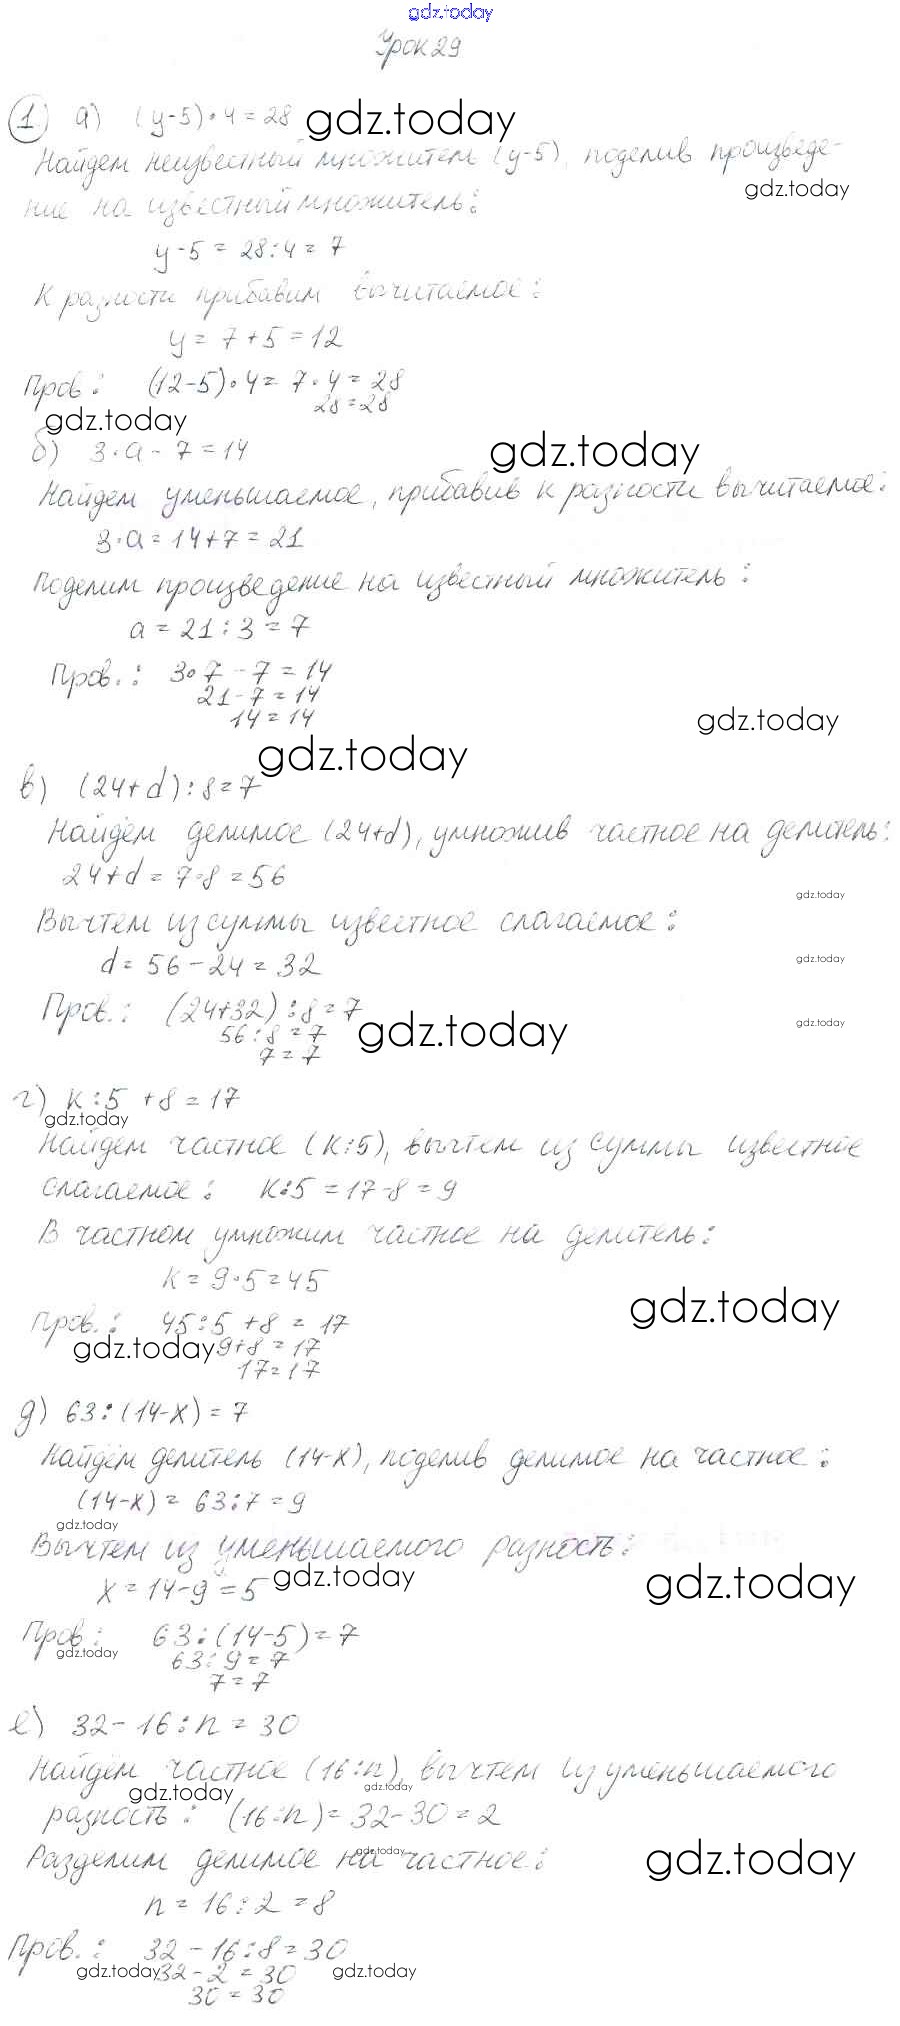 gdz.today
Урок 29
1 а) (y-5)•4=28 gdz.today
Найдем неизвестный множитель (y-5), поделив произведе-
gdz.today
ние на известный множитель:
y-5 = 28:4 = 7
К разности прибавим вычитаемое:
y = 7+5 = 12
Пров: (12-5)•4 = 7•4 = 28
28=28
gdz.today
б) 3•a - 7 = 14 gdz.today
Найдем уменьшаемое, прибавив к разности вычитаемое:
3•a = 14+7 = 21
Поделим произведение на известный множитель:
a = 21:3 = 7
Пров.: 3•7 - 7 = 14
21-7 = 14
14 = 14 gdz.today
gdz.today
в) (24+d):8=7
Найдём делимое (24+d), умножив частное на делитель:
24+d = 7•8 = 56
gdz.today
Вычтем из суммы известное слагаемое:
d = 56-24 = 32 gdz.today
Пров.: (24+32):8=7
56:8 = 7 gdz.today gdz.today
7 = 7
г) k:5 +8 = 17
gdz.today
Найдем частное (k:5), вычтем из суммы известное
слагаемое: k:5 = 17-8 = 9
В частном умножим частное на делитель:
k = 9•5 = 45
gdz.today
Пров.: 45:5 +8 = 17
gdz.today 9+8 = 17
17=17
д) 63:(14-x) = 7
Найдём делитель (14-x), поделив делимое на частное:
(14-x) = 63:7 = 9
gdz.today
Вычтем из уменьшаемого разность:
x = 14-9 = 5 gdz.today gdz.today
Пров: 63:(14-5)=7
gdz.today 63:9 = 7
7 = 7
е) 32-16:n = 30
Найдём частное (16:n), вычтем из уменьшаемого
gdz.today gdz.today
разность: (16:n) = 32-30 = 2
Разделим делимое на частное:
gdz.today gdz.today
n = 16:2 = 8
Пров.: 32 - 16:8 = 30
gdz.today 32-2 = 30 gdz.today
30 = 30